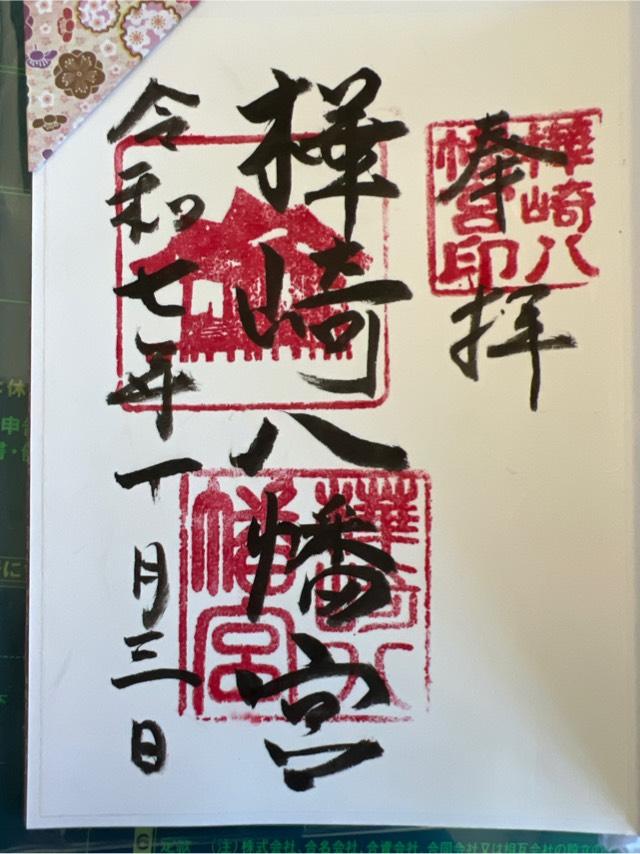 奉拝
樺崎八
幡宮印
樺崎八幡宮
樺崎八
幡宮
令和七年一月三日
6 定款 (注)株式会社、合名会社、合資会社、合同会社又は相互会社の設立の